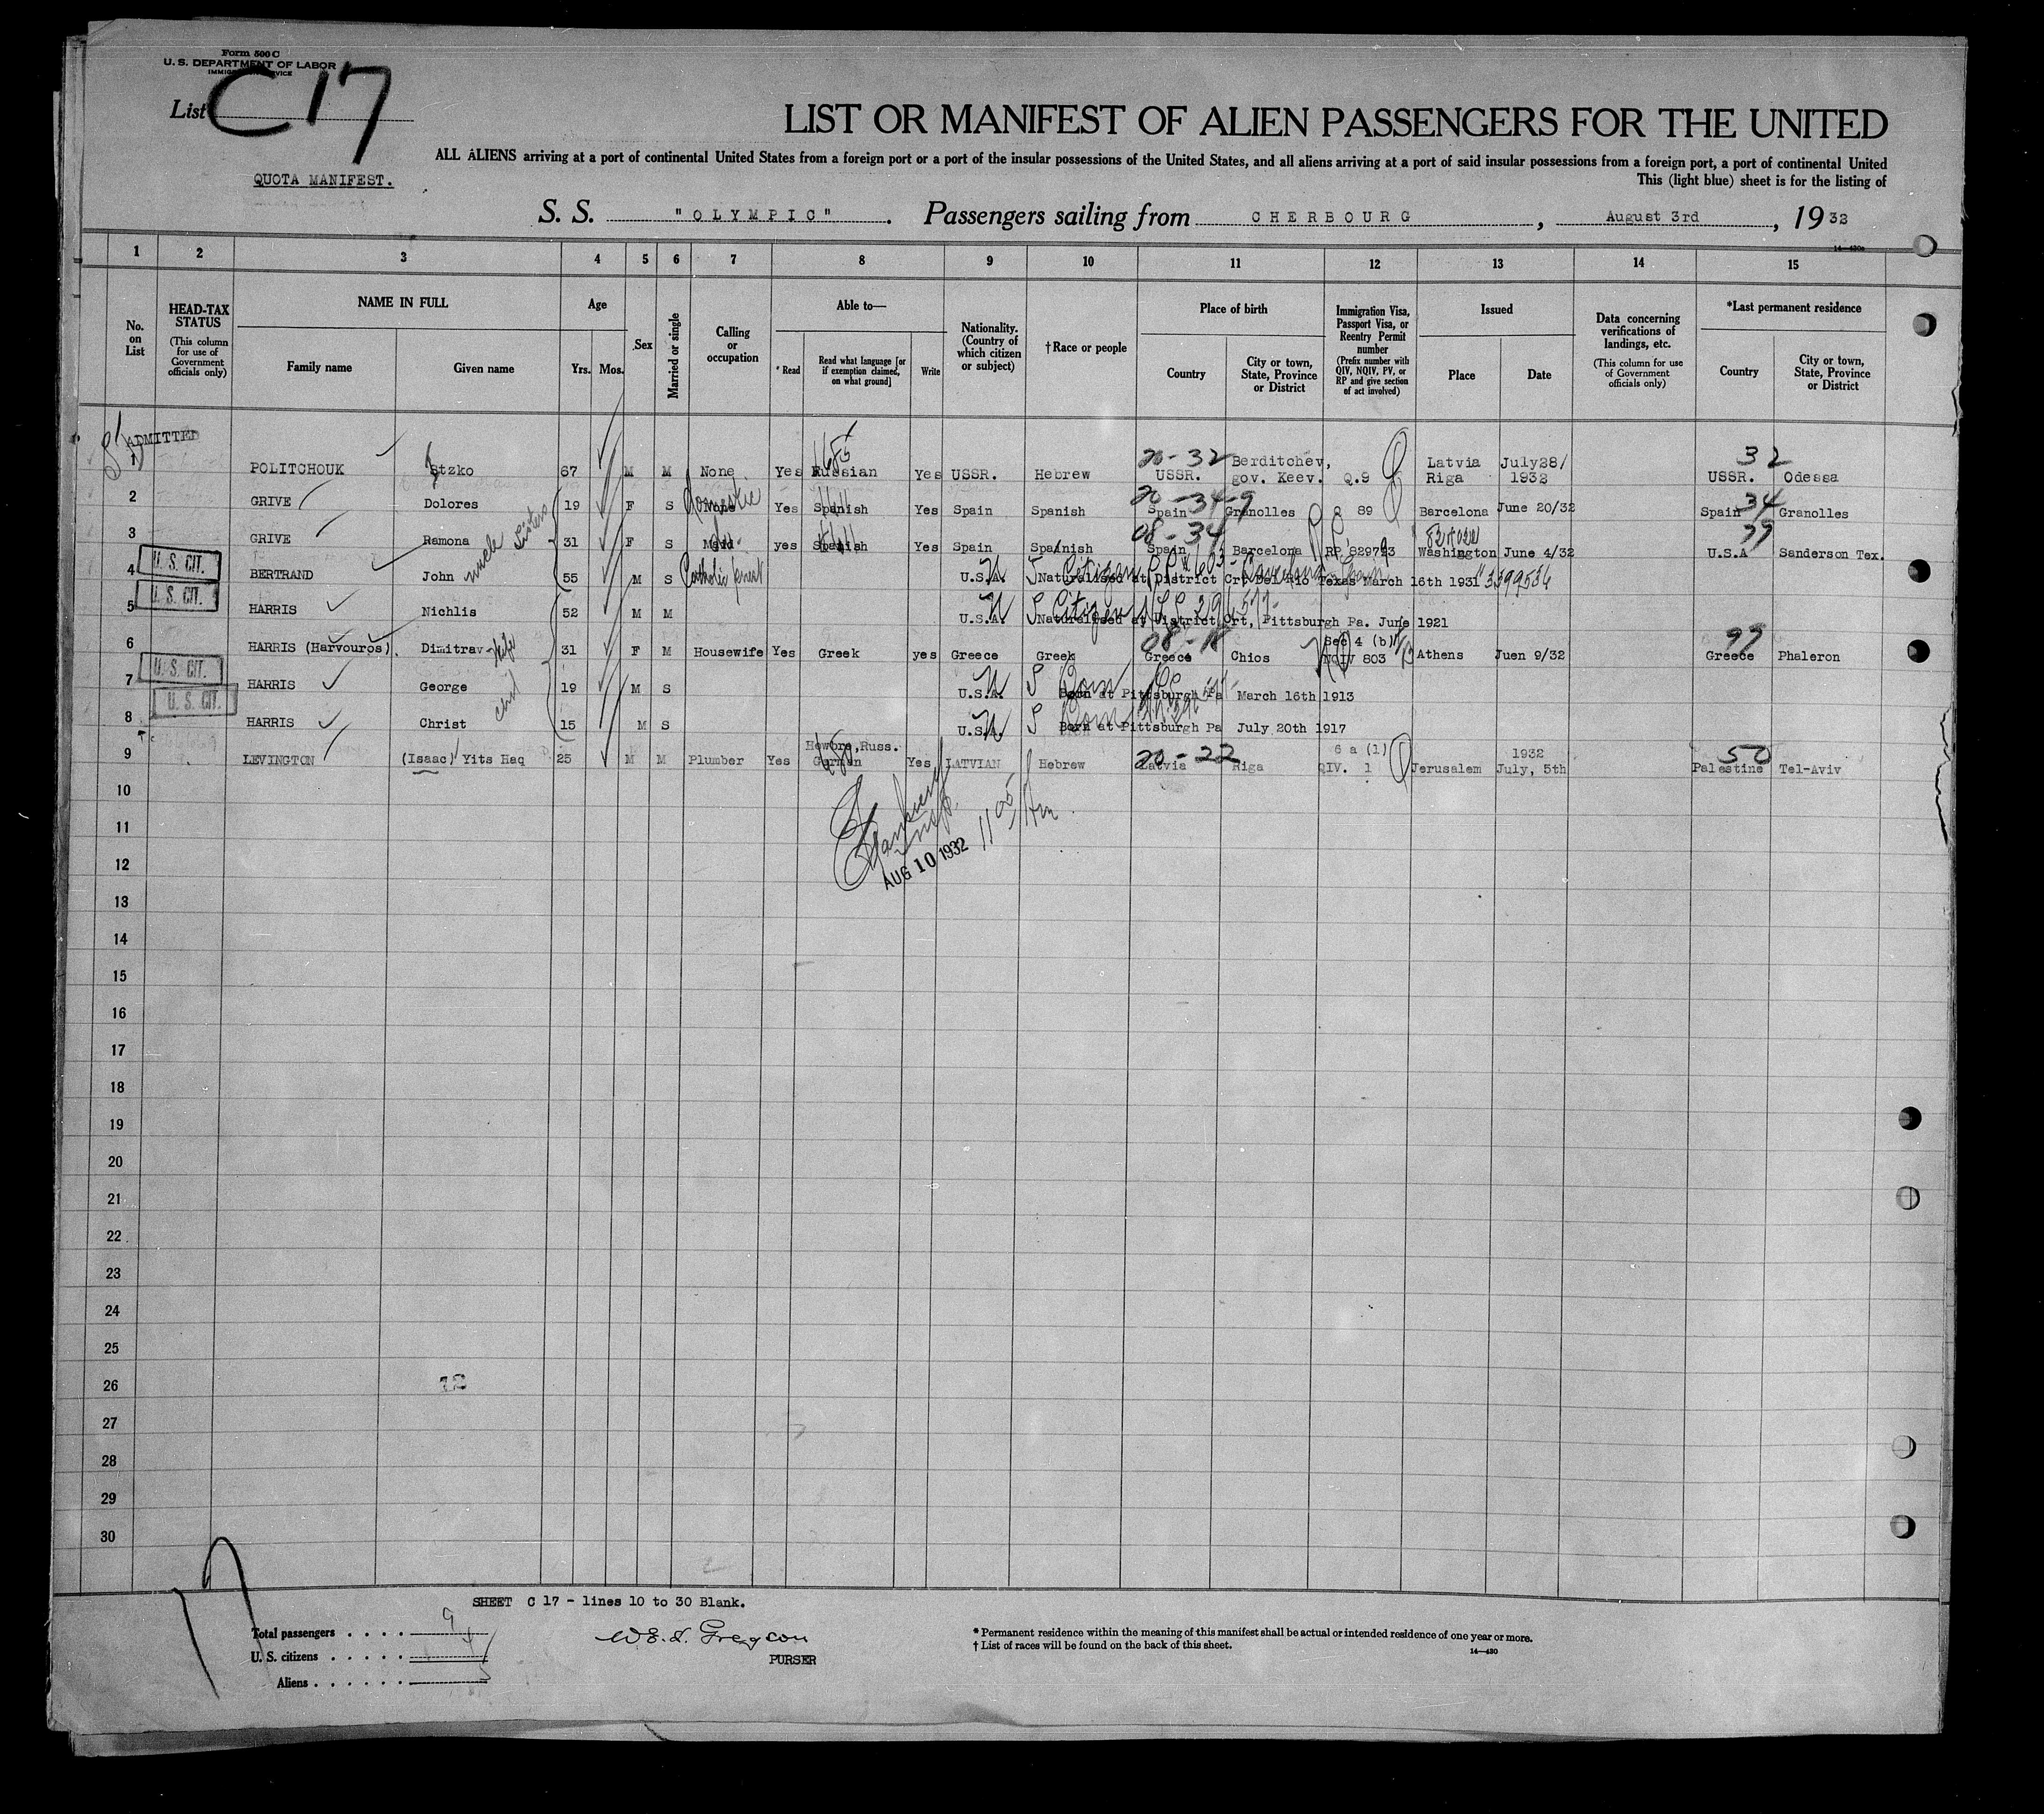 Form 500 C
U. S. DEPARTMENT OF LABOR
IMMIGRATION SERVICE
List C 17
LIST OR MANIFEST OF ALIEN PASSENGERS FOR THE UNITED
ALL ALIENS arriving at a port of continental United States from a foreign port or a port of the insular possessions of the United States, and all aliens arriving at a port of said insular possessions from a foreign port, a port of continental United
QUOTA MANIFEST.
This (light blue) sheet is for the listing of
S. S. "OLYMPIC". Passengers sailing from CHERBOURG, August 3rd, 1932
14—430a
1 2 3 4 5 6 7 8 9 10 11 12 13 14 15
No. on List
HEAD-TAX STATUS (This column for use of Government officials only)
NAME IN FULL
Family name
Given name
Age
Yrs. Mos.
Sex
Married or single
Calling or occupation
Able to—
* Read
Read what language [or if exemption claimed, on what ground]
Write
Nationality. (Country of which citizen or subject)
†Race or people
Place of birth
Country
City or town, State, Province or District
Immigration Visa, Passport Visa, or Reentry Permit number (Prefix number with QIV, NQIV, PV, or RP and give section of act involved)
Issued
Place
Date
Data concerning verifications of landings, etc. (This column for use of Government officials only)
*Last permanent residence
Country
City or town, State, Province or District
ADMITTED
1 POLITCHOUK Etzko 67 M M None Yes Russian Yes USSR. Hebrew 20-32 USSR. Berditchev, gov. Keev. Q.9 Latvia Riga July28/ 1932 32 USSR. Odessa
2 GRIVE Dolores 19 F S Domestic Yes Spanish Yes Spain Spanish 20-34-9 Spain Granolles 89 Barcelona June 20/32 34 Spain Granolles
3 GRIVE Ramona Sisters 31 F S Maid yes Spanish Yes Spain Spanish 08-34 Spain Barcelona RP 829793 Washington June 4/32 99 U.S.A Sanderson Tex.
U. S. CIT.
4 BERTRAND John uncle 55 M S Catholic priest U.S.A. Citizen Naturalised at District Crt Del Rio Texas March 16th 1931 #3399536
U. S. CIT.
5 HARRIS Nichlis 52 M M U.S.A. Citizen Naturalised at District Crt, Pittsburgh Pa. June 1921
6 HARRIS (Harvouros). Dimitrav wife 31 F M Housewife Yes Greek yes Greece Greek 08-18 Greece Chios Sec 4 (b) NQIV 803 Athens Juen 9/32 99 Greece Phaleron
U. S. CIT.
7 HARRIS George 19 M S U.S.A. Born at Pittsburgh Pa March 16th 1913
U. S. CIT.
8 HARRIS Christ child 15 M S U.S.A. Born at Pittsburgh Pa July 20th 1917
9 LEVINGTON (Isaac) Yits Haq 25 M M Plumber Yes Hewbre,Russ. German Yes LATVIAN Hebrew 20-22 Latvia Riga 6 a (1) QIV. 1 Jerusalem 1932 July, 5th 50 Palestine Tel-Aviv
10
11
AUG 10 1932
12
13
14
15
16
17
18
19
20
21
22
23
24
25
26
12
27
28
29
30
SHEET C 17 - lines 10 to 30 Blank.
Total passengers . . . . 9
U. S. citizens . . . . . 4
Aliens . . . . . . 5
W. E. L. Gregson
PURSER
* Permanent residence within the meaning of this manifest shall be actual or intended residence of one year or more.
† List of races will be found on the back of this sheet.
14—430